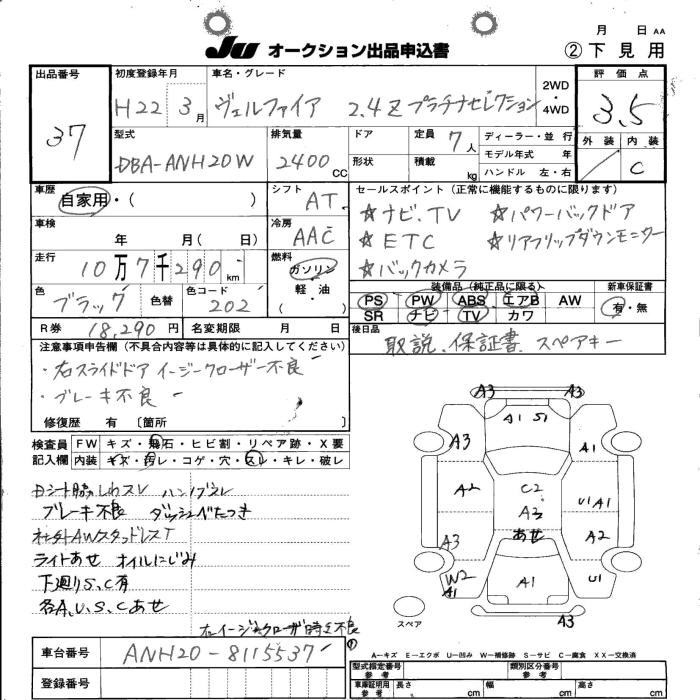 月 日 AA
JU オークション出品申込書 ②下見用
出品番号 37
初度登録年月 H22 3月
車名・グレード ヴェルファイア 2.4Z プラチナセレクション
2WD・4WD
評価点 3.5
外装 内装 C
型式 DBA-ANH20W
排気量 2400 CC
ドア
形状
定員 7人
積載 kg
ディーラー・並行
モデル年式 年
ハンドル 左・右
車歴 自家用・( )
シフト AT
車検 年 月( 日)
冷房 AAC
走行 10万7千290km
燃料 ガソリン 軽油 ( )
色 ブラック 色替
色コード 202
R券 18,290円 名変期限 月 日
セールスポイント(正常に機能するものに限ります)
☆ナビ.TV ☆パワーバックドア
☆ETC ☆リアフリップダウンモニター
☆バックカメラ
装備品(純正品に限る) 新車保証書
PS PW ABS エアB AW 有・無
SR ナビ TV カワ
後日品 取説.保証書.スペアキー
注意事項申告欄(不具合内容等は具体的に記入してください)
・右スライドドア イージークローザー不良
・ブレーキ不良
修復歴 有 〔箇所 〕
検査員記入欄
FW キズ・飛石・ヒビ割・リペア跡・X要
内装 キズ・汚レ・コゲ・穴・スレ・キレ・破レ
Dシート脇しわスレ ハンドルスレ
ブレーキ不良 ダッシュべたつき
社外AWスタッドレスT
ライトあせ オイルにじみ
下廻りS、C有
各A、U、S、Cあせ
右イージークローザ時々不良
車台番号 ANH20-8115537
登録番号
A3 A3
A1 S1
A3 A1
A2 C2 U1 A1
A3
A3 あせ A2
W2 A1 A1 U1
スペア A3
A-キズ E-エクボ U-凹み W-補修跡 S-サビ C-腐食 XX-交換済
型式指定番号 参考 類別区分番号 参考
車庫証明用 参考 長さ cm 幅 cm 高さ cm